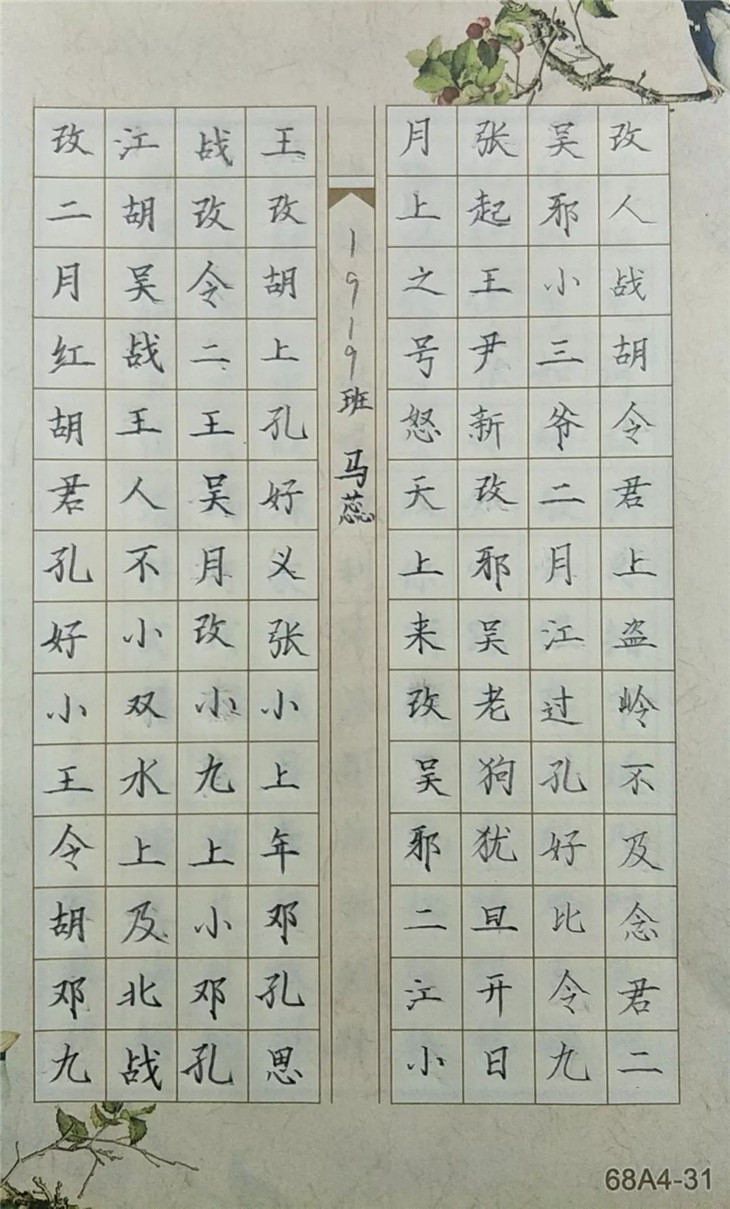 孜人战胡令君上盗岭不及念君二
吴邪小三爷二月江过孔好比令九
张起王尹新孜邪吴老狗犹旦开日
月上之号怒天上来孜吴邪二江小
1919班 马蕊
王孜胡上孔好义张小上年邓孔思
战孜令二王吴月孜小九上小邓孔
江胡吴战王人不小双水上及北战
孜二月红胡君孔好小王令胡邓九
68A4-31